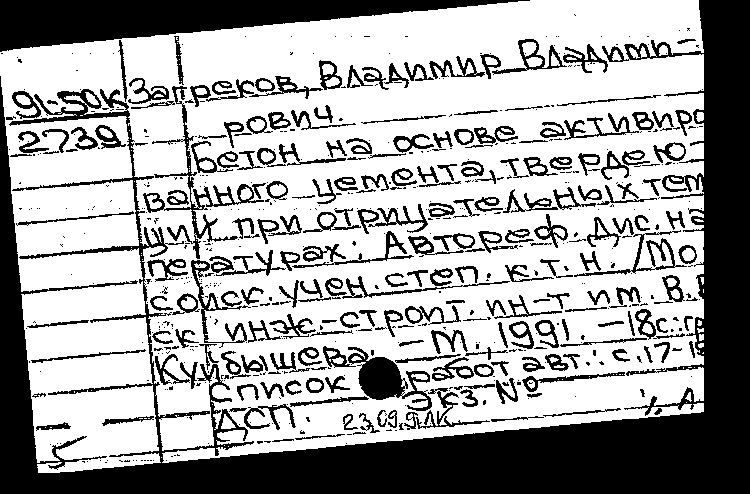 91-50К Запреков, Владимир Владими-
2739 рович.
Бетон на основе активиро
ванного цемента, твердею-
щий при отрицательных тем
пературах: Автореф. дис. на
соиск. учен. степ. к. т. н. /Мо
ск. инж.-строит. ин-т им. В.В
Куйбышева. - М., 1991. - 18с.:гр
Список работ авт.: с. 17-18
ДСП. Экз. №
23.09.91ЛК
5